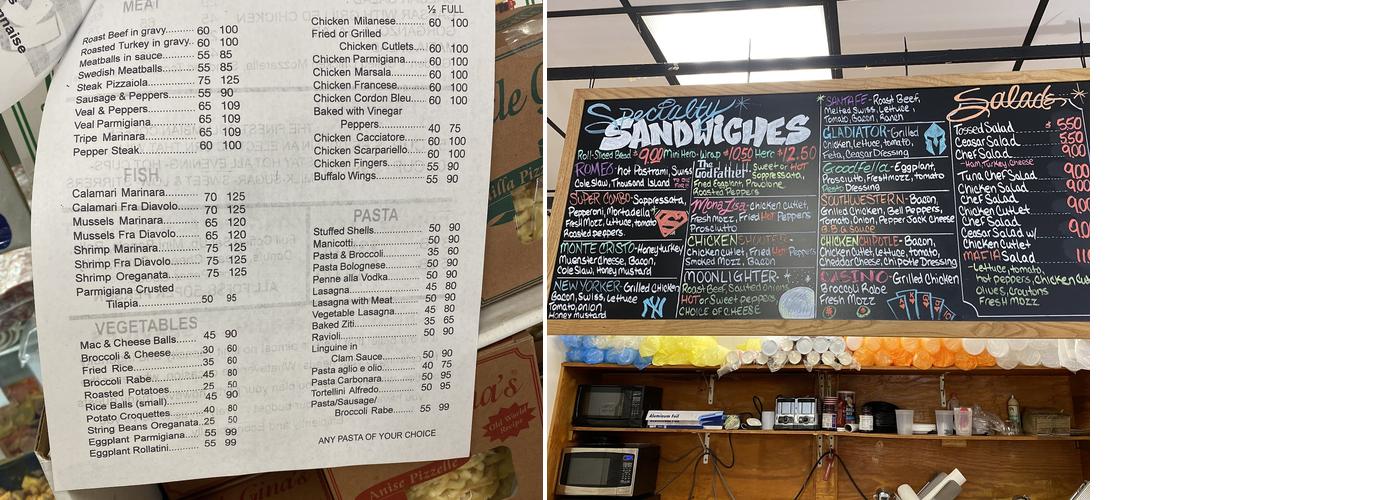 MEAT
Roast Beef in gravy 60 100
Roasted Turkey in gravy 60 100
Meatballs in sauce 55 85
Swedish Meatballs 55 85
Steak Pizzaiola 75 125
Sausage & Peppers 55 90
Veal & Peppers 65 109
Veal Parmigiana 65 109
Tripe Marinara 65 109
Pepper Steak 60 100
FISH
Calamari Marinara 70 125
Calamari Fra Diavolo 70 125
Mussels Marinara 65 120
Mussels Fra Diavolo 65 120
Shrimp Marinara 75 125
Shrimp Fra Diavolo 75 125
Shrimp Oreganata 75 125
Parmigiana Crusted
Tilapia 50 95
VEGETABLES
Mac & Cheese Balls 45 90
Broccoli & Cheese 30 60
Fried Rice 35 60
Broccoli Rabe 45 80
Roasted Potatoes 25 50
Rice Balls (small) 45 90
Potato Croquettes 25 50
String Beans Oreganata 40 80
Eggplant Parmigiana 55 99
Eggplant Rollatini 55 99
½ FULL
Chicken Milanese 60 100
Fried or Grilled
Chicken Cutlets 60 100
Chicken Parmigiana 60 100
Chicken Marsala 60 100
Chicken Francese 60 100
Chicken Cordon Bleu 60 100
Baked with Vinegar
Peppers 40 75
Chicken Cacciatore 60 100
Chicken Scarpariello 60 100
Chicken Fingers 55 90
Buffalo Wings 55 90
PASTA
Stuffed Shells 50 90
Manicotti 50 90
Pasta & Broccoli 35 60
Pasta Bolognese 50 90
Penne alla Vodka 50 90
Lasagna 45 80
Lasagna with Meat 50 90
Vegetable Lasagna 45 80
Baked Ziti 35 65
Ravioli 50 90
Linguine in
Clam Sauce 50 90
Pasta aglio e olio 40 75
Pasta Carbonara 50 95
Tortellini Alfredo 50 95
Pasta/Sausage/
Broccoli Rabe 55 99
ANY PASTA OF YOUR CHOICE
Old World
Recipe
Anise Pizzelle
Specialty
SANDWICHES
Roll-Sliced Bread $9.00 Mini Hero-Wrap $10.50 Hero $12.50
ROMEO-hot Pastrami, Swiss
Cole Slaw, Thousand Island
SUPER COMBO-Soppressata,
Pepperoni, Mortadella
Fresh Mozz, Lettuce, tomato
Roasted peppers
MONTE CRISTO-Honey turkey
Muenster Cheese, Bacon,
Cole Slaw, Honey mustard
NEW YORKER-Grilled Chicken
Bacon, Swiss, Lettuce
Tomato, onion
Honey mustard
NY
The Godfather-Sweet or HOT
Soppressata,
Fried Eggplant, Provolone,
Roasted Peppers
Mona Lisa-chicken cutlet,
Fresh mozz, Fried Hot Peppers
Prosciutto
CHICKEN SHOOTER-
Chicken Cutlet, Fried Hot Peppers
Smoked Mozz, Bacon
MOONLIGHTER-
Roast Beef, Sautéed onions
HOT or Sweet peppers,
CHOICE OF CHEESE
SANTA FE-Roast Beef,
Melted Swiss, Lettuce,
Tomato, Bacon, Ranch
GLADIATOR-Grilled
Chicken, Lettuce, tomato,
Feta, Ceasar Dressing
Goodfella-Eggplant,
Prosciutto, Fresh mozz,
Pesto Dressing
SOUTHWESTERN-Bacon,
Grilled Chicken, Bell Peppers,
Tomato, Onion, Pepper Jack Cheese
B.B.Q. Sauce
CHICKEN CHIPOTLE-Bacon,
Chicken Cutlet, Lettuce, tomato,
Cheddar Cheese, Chipotle Dressing
CASINO-Grilled Chicken
Broccoli Rabe
Fresh Mozz
Salads
Tossed Salad $5.50
Ceasar Salad 5.50
Chef Salad 9.00
-Ham, Turkey, Cheese
Tuna Chef Salad 9.00
Chicken Salad 9.00
Chef Salad
Chicken Cutlet 9.00
Chef Salad
Ceasar Salad w/
Chicken Cutlet
MAFIA Salad
-Lettuce, tomato,
hot peppers, Chicken
Olives, Croutons
Fresh Mozz
Aluminum Foil